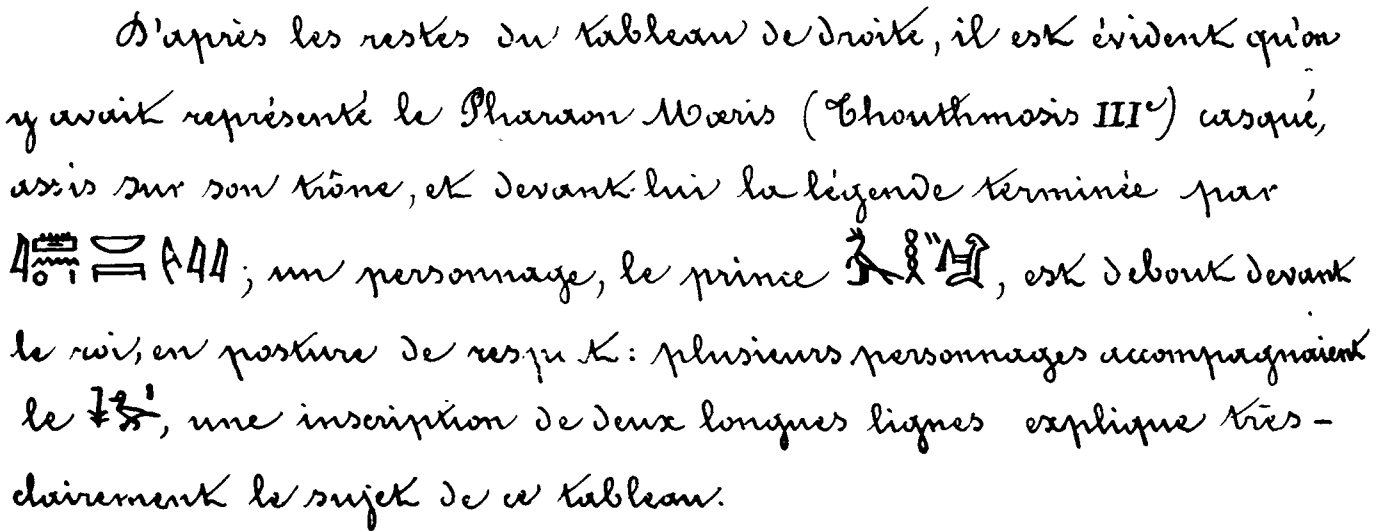 D'après les restes du tableau de droite, il est évident qu'on
y avait représenté le Pharaon Mœris (Thouthmosis IIIᵉ) casqué,
assis sur son trône, et devant lui la légende terminée par
; un personnage, le prince , est debout devant
le roi, en posture de respect : plusieurs personnages accompagnaient
le , une inscription de deux longues lignes explique très-
clairement le sujet de ce tableau.